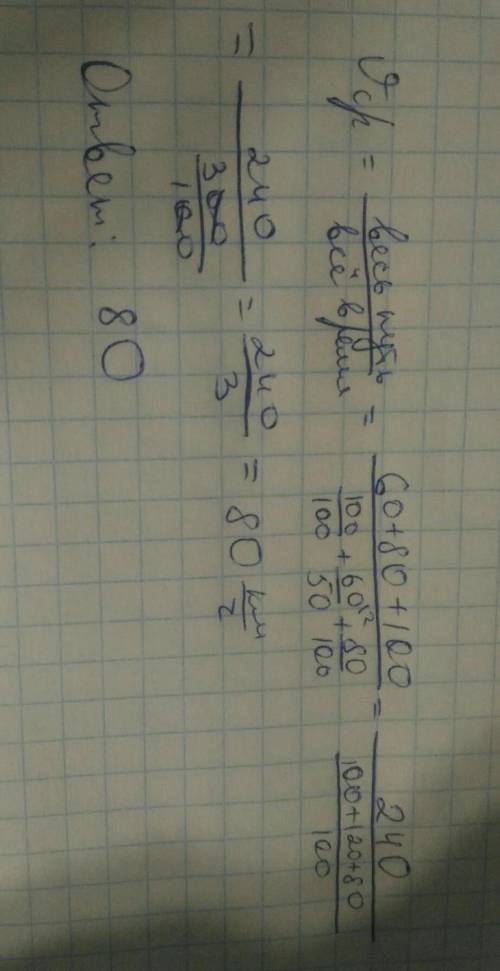 Vср = весь путь / всё время = (60+80+100) / (100/100 + 60^(·2)/50 + 80/100) = 240 / ((100+120+80)/100)
= 240 / (300/100) = 240/3 = 80 км/ч
Ответ: 80